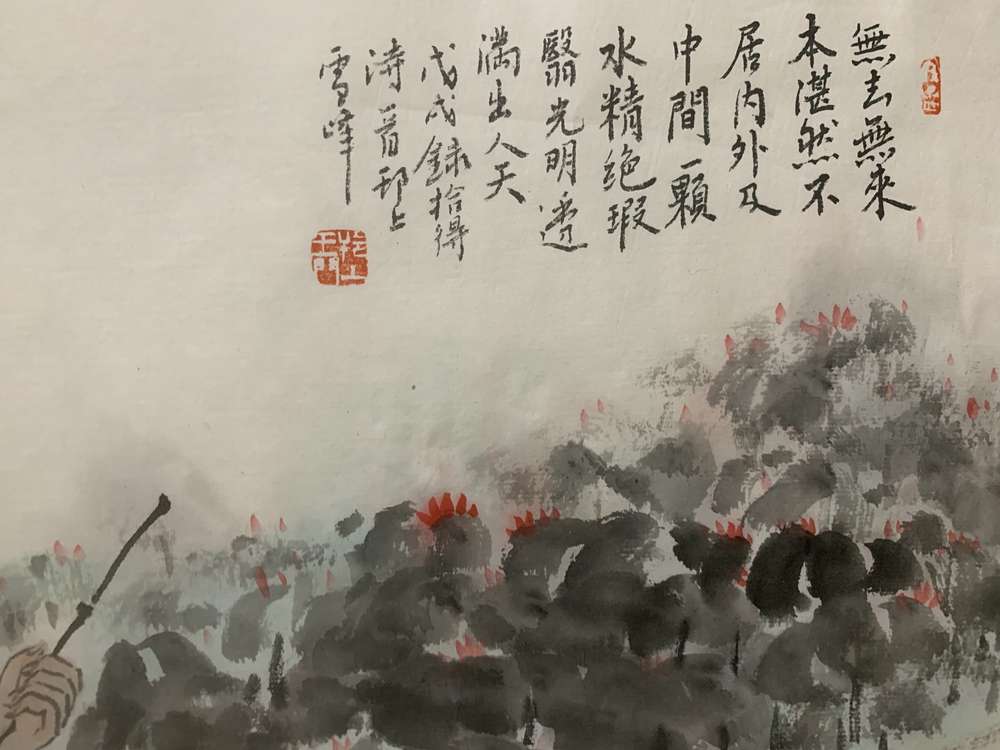 無去無來
本湛然不
居内外及
中間一顆
水精絶瑕
翳光明透
滿出人天
戊戌錄拾得
詩晋邗上
雪峰